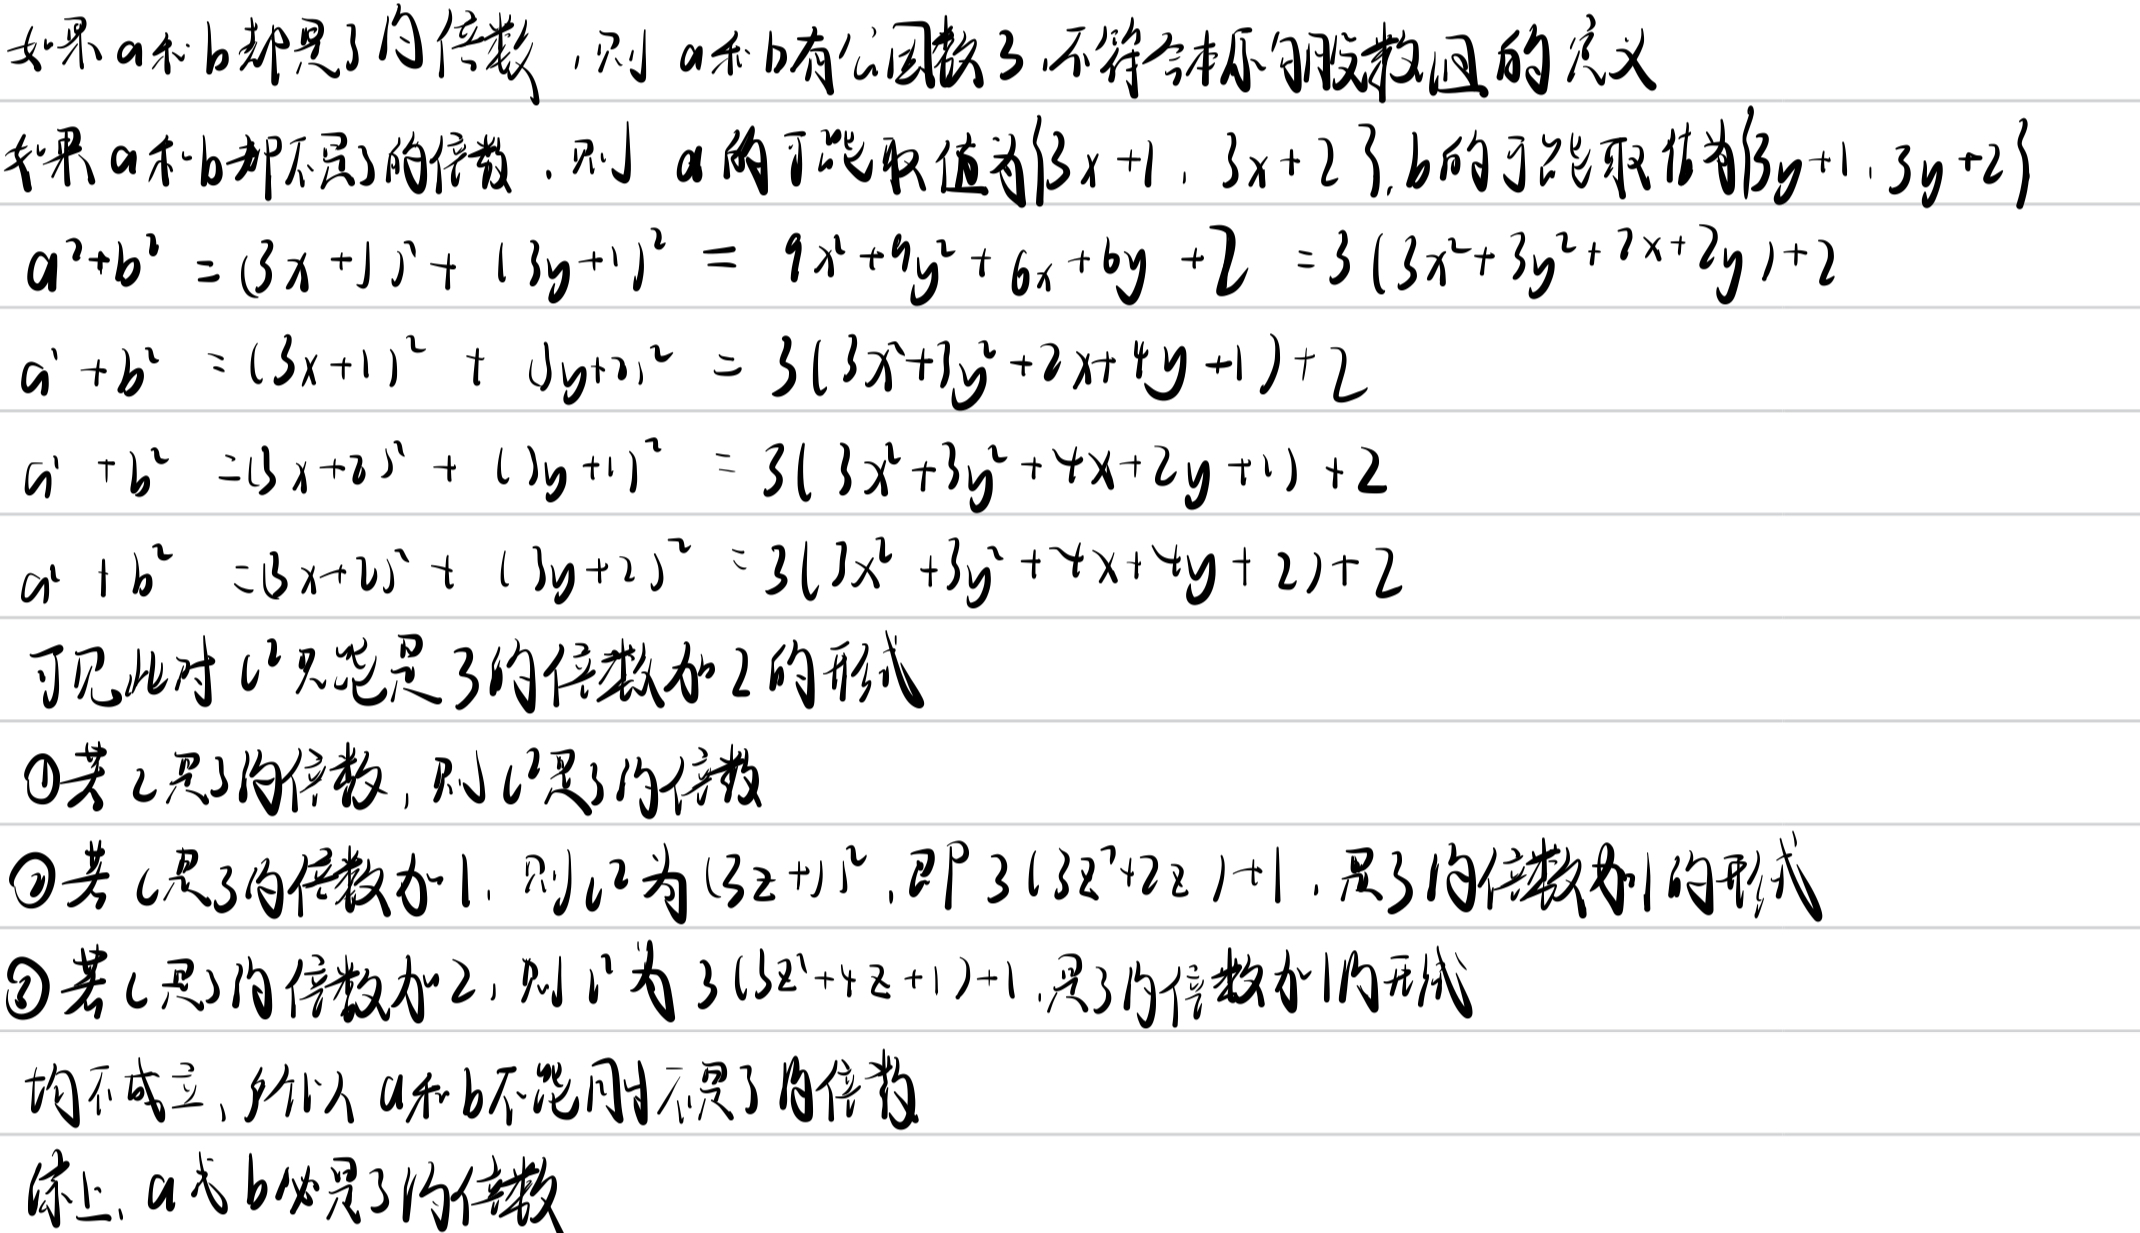 如果a和b都是3的倍数,则a和b有公因数3,不符合本原勾股数组的定义
如果a和b都不是3的倍数,则a的可能取值为{3x+1, 3x+2},b的可能取值为{3y+1, 3y+2}
a²+b² =(3x+1)²+(3y+1)² = 9x²+9y²+6x+6y+2 =3(3x²+3y²+2x+2y)+2
a²+b² =(3x+1)²+(3y+2)² = 3(3x²+3y²+2x+4y+1)+2
a²+b² =(3x+2)²+(3y+1)² = 3(3x²+3y²+4x+2y+1)+2
a²+b² =(3x+2)²+(3y+2)² =3(3x²+3y²+4x+4y+2)+2
可见此时c²只能是3的倍数加2的形式
①若c是3的倍数,则c²是3的倍数
②若c是3的倍数加1,则c²为(3z+1)²,即3(3z²+2z)+1,是3的倍数加1的形式
③若c是3的倍数加2,则c²为3(3z²+4z+1)+1,是3的倍数加1的形式
均不成立,所以a和b不能同时不是3的倍数
综上,a或b必是3的倍数